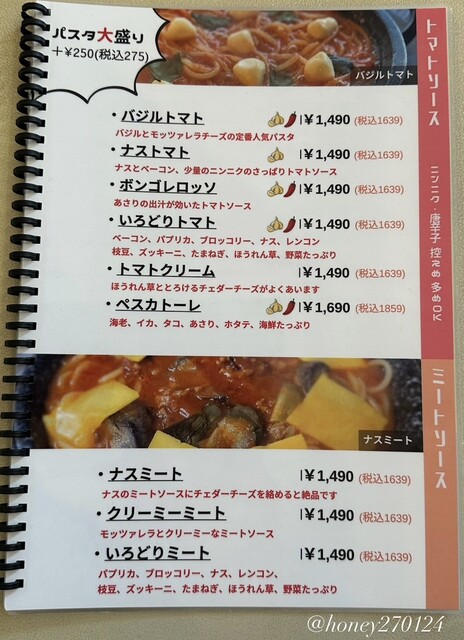 パスタ大盛り
＋¥250(税込275)
バジルトマト
トマトソース
ニンニク・唐辛子 控えめ 多めOK
・バジルトマト ¥1,490 (税込1639)
バジルとモッツァレラチーズの定番人気パスタ
・ナストマト ¥1,490 (税込1639)
ナスとベーコン、少量のニンニクのさっぱりトマトソース
・ボンゴレロッソ ¥1,490 (税込1639)
あさりの出汁が効いたトマトソース
・いろどりトマト ¥1,490 (税込1639)
ベーコン、パプリカ、ブロッコリー、ナス、レンコン
枝豆、ズッキーニ、たまねぎ、ほうれん草、野菜たっぷり
・トマトクリーム ¥1,490 (税込1639)
ほうれん草ととろけるチェダーチーズがよくあいます
・ペスカトーレ ¥1,690 (税込1859)
海老、イカ、タコ、あさり、ホタテ、海鮮たっぷり
ナスミート
ミートソース
・ナスミート ¥1,490 (税込1639)
ナスのミートソースにチェダーチーズを絡めると絶品です
・クリーミーミート ¥1,490 (税込1639)
モッツァレラとクリーミーなミートソース
・いろどりミート ¥1,490 (税込1639)
パプリカ、ブロッコリー、ナス、レンコン、
枝豆、ズッキーニ、たまねぎ、ほうれん草、野菜たっぷり
@honey270124